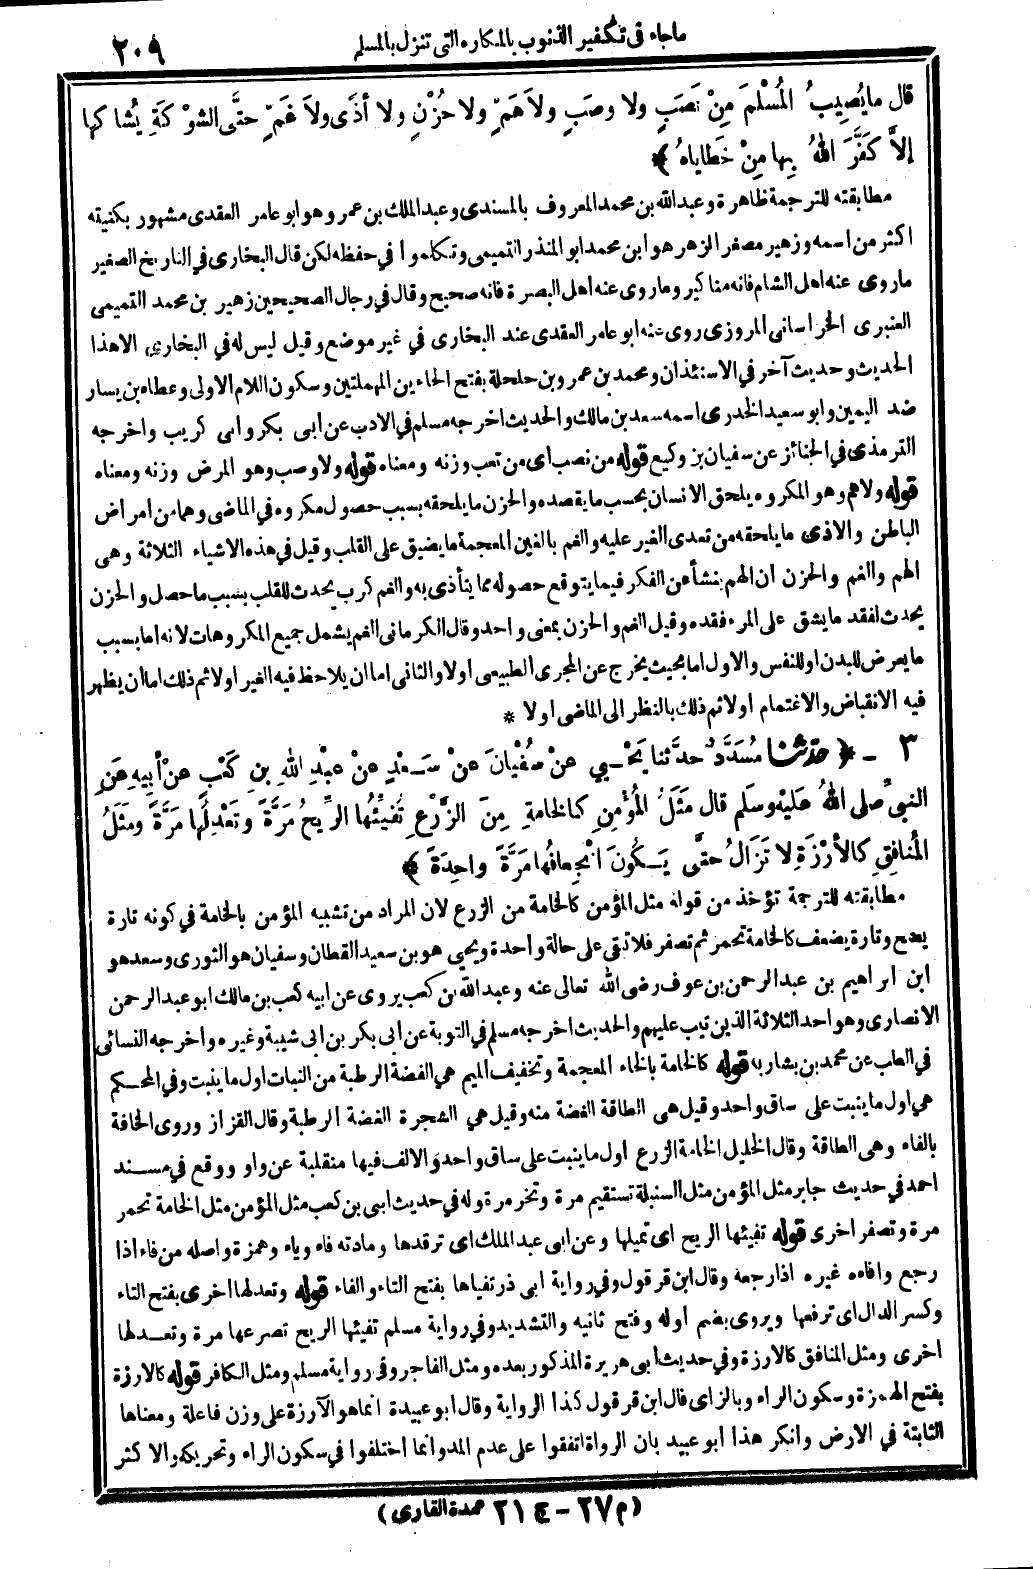 ماجاء فى تكفير الذنوب بالمكاره التى تنزل بالمسلم ٢٠٩
قال ما يُصِيبُ المُسْلِمَ مِنْ نَصَبٍ ولا وصَبٍ ولاَ هَمّ ولا حُزْنٍ ولا أذًى ولاَ غَمّ حتَّى الشوْكَةِ يُشاكها
إلاَّ كَفَّرَ اللهُ بِها مِنْ خَطاياهُ ﴾
مطابقته للترجمة ظاهرة وعبدالله بن محمد المعروف بالمسندى وعبد الملك بن عمرو هو ابو عامر العقدى مشهور بكنيته
اكثر من اسمه وزهير مصغر الزهر هو ابن محمد ابو المنذر التميمى وتكلموا فى حفظه لكن قال البخارى فى التاريخ الصغير
ماروى عنه اهل الشام فانه مناكير وماروى عنه اهل البصرة فانه صحيح وقال فى رجال الصحيحين زهير بن محمد التميمى
العنبرى الخراسانى المروزى روى عنه ابو عامر العقدى عند البخارى فى غير موضع وقيل ليس له فى البخارى الاهذا
الحديث وحديث آخر فى الاستئذان ومحمد بن عمرو بن حلحلة بفتح الحاءين المهملتين وسكون اللام الاولى وعطاء بن يسار
ضد اليمين وابو سعيد الخدرى اسمه سعد بن مالك والحديث اخرجه مسلم فى الادب عن ابى بكر وابى كريب واخرجه
الترمذى فى الجنائز عن سفيان بن وكيع قوله من نصب اى من تعب وزنه ومعناه قوله ولا وصب وهو المرض وزنه ومعناه
قوله ولاهم وهو المكروه يلحق الانسان بحسب ما يقصده والحزن ما يلحقه بسبب حصول مكروه فى الماضى وهما من امراض
الباطن والاذى ما يلحقه من تعدى الغير عليه والغم بالغين المعجمة ما يضيق على القلب وقيل فى هذه الاشياء الثلاثة وهى
الهم والغم والحزن ان الهم ينشأ عن الفكر فيما يتوقع حصوله مما يتأذى به والغم كرب يحدث للقلب بسبب ما حصل والحزن
يحدث لفقد ما يشق على المرء فقده وقيل الغم والحزن بمعنى واحد وقال الكرمانى الغم يشمل جميع المكروهات لانه اما بسبب
ما يعرض للبدن او للنفس والاول اما بحيث يخرج عن المجرى الطبيعى اولا والثانى اما ان يلاحظ فيه الغير اولا ثم ذلك اما ان يظهر
فيه الانقباض والاغتمام اولا ثم ذلك بالنظر الى الماضى اولا *
٣ - ﴿ حدّثنا مُسَدَّدٌ حدَّثنا يَحْيى عنْ سُفْيانَ عنْ سَعْدٍ عنْ عبْدِ اللهِ بنِ كَعْبٍ عنْ أبِيهِ عَنِ
النبيِّ صلى اللهُ عليْهِ وسلَّم قال مَثَلُ المُؤْمِنِ كالخامةِ مِنَ الزَّرْعِ تُفَيِّئُها الرِّيحُ مَرَّةً وتَعْدِلُها مَرَّةً ومَثَلُ
المُنافِقِ كالأَرْزَةِ لا تَزَالُ حتَّى يَكُونَ انْجِعافُها مَرَّةً واحِدَةً ﴾
مطابقته للترجمة تؤخذ من قوله مثل المؤمن كالخامة من الزرع لان المراد من تشبيه المؤمن بالخامة فى كونه تارة
يصح وتارة يضعف كالخامة تحمر ثم تصفر فلا تبقى على حالة واحدة ويحيى هو بن سعيد القطان وسفيان هو الثورى وسعد هو
ابن ابراهيم بن عبدالرحمن بن عوف رضى الله تعالى عنه وعبدالله بن كعب يروى عن ابيه كعب بن مالك ابو عبد الرحمن
الانصارى وهو احد الثلاثة الذين تيب عليهم والحديث اخرجه مسلم فى التوبة عن ابى بكر بن ابى شيبة وغيره واخرجه النسائى
فى الطب عن محمد بن بشار به قوله كالخامة بالخاء المعجمة وتخفيف الميم هى الغضة الرطبة من النبات اول ما ينبت وفى المحكم
هى اول ما ينبت على ساق واحد وقيل هى الطاقة الغضة منه وقيل هى الشجرة الغضة الرطبة وقال القزاز وروى الخافة
بالفاء وهى الطاقة وقال الخليل الخامة الزرع اول ما ينبت على ساق واحد والالف فيها منقلبة عن واو ووقع فى مسند
احمد فى حديث جابر مثل المؤمن مثل السنبلة تستقيم مرة وتخر مرة وله فى حديث ابى بن كعب مثل المؤمن مثل الخامة تحمر
مرة وتصفر اخرى قوله تفيئها الريح اى تميلها وعن ابى عبد الملك اى ترقدها ومادته فاء وياء وهمزة واصله من فاء اذا
رجع وافاءه غيره اذا رجعه وقال ابن قرقول وفى رواية ابى ذر تفياها بفتح التاء والفاء قوله وتعدلها اخرى بفتح التاء
وكسر الدال اى ترفعها ويروى بضم اوله وفتح ثانيه والتشديد وفى رواية مسلم تفيئها الريح تصرعها مرة وتعدلها
اخرى ومثل المنافق كالارزة وفى حديث ابى هريرة المذكور بعده ومثل الفاجر وفى رواية مسلم ومثل الكافر قوله كالارزة
بفتح الهمزة وسكون الراء وبالزاى قال ابن قرقول كذا الرواية وقال ابو عبيدة انما هو الآرزة على وزن فاعلة ومعناها
الثابتة فى الارض وانكر هذا ابو عبيد بان الرواة اتفقوا على عدم المد وانما اختلفوا فى سكون الراء وتحريكه والاكثر
(م ٢٧ - ج ٢١ عمدة القارى)